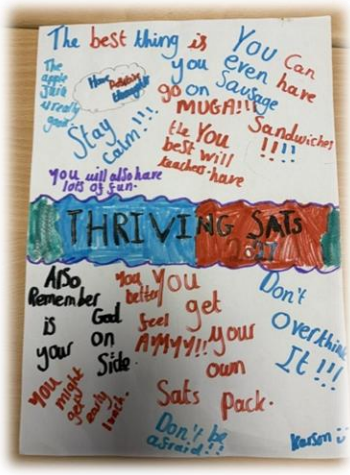 The best thing is
you
go on
MUGA!!!
You Can
even have
Sausage
Sandwiches
!!!!
The
apple
juice
is really
good!
Have
Positive
thoughts
Stay
Calm!!!
You
the best will
teachers have
You will also have
lots of fun.
THRIVING SATs
Also
Remember
God
is on
your Side.
You
better
feel
AMYY!!
You
get
your
own
Sats
Pack.
Don't
overthink
It!!!
You
might
get
early
lunch.
Don't be
afraid!!
Karson